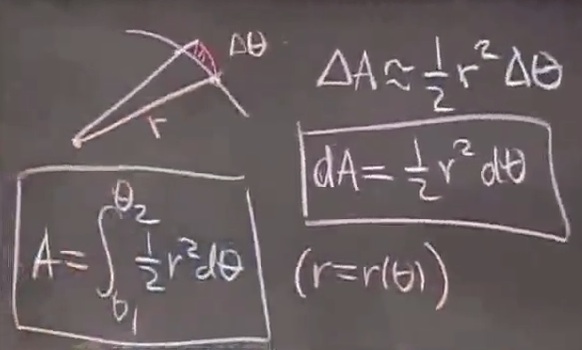 Δθ
r
ΔA ≈ 1/2 r² Δθ
dA = 1/2 r² dθ
A = ∫_θ₁^θ₂ 1/2 r² dθ
(r = r(θ))